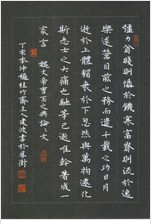 強力貧賤則懾於饑寒富貴則流於逸
樂遂營目前之務而遺千載之功日月
逝於上體貌衰於下忽然與萬物遷化
斯志士之大痛也融等已逝唯幹著成一
家言 魏文帝曹丕之典論論文
桂竹齋主人建波書於